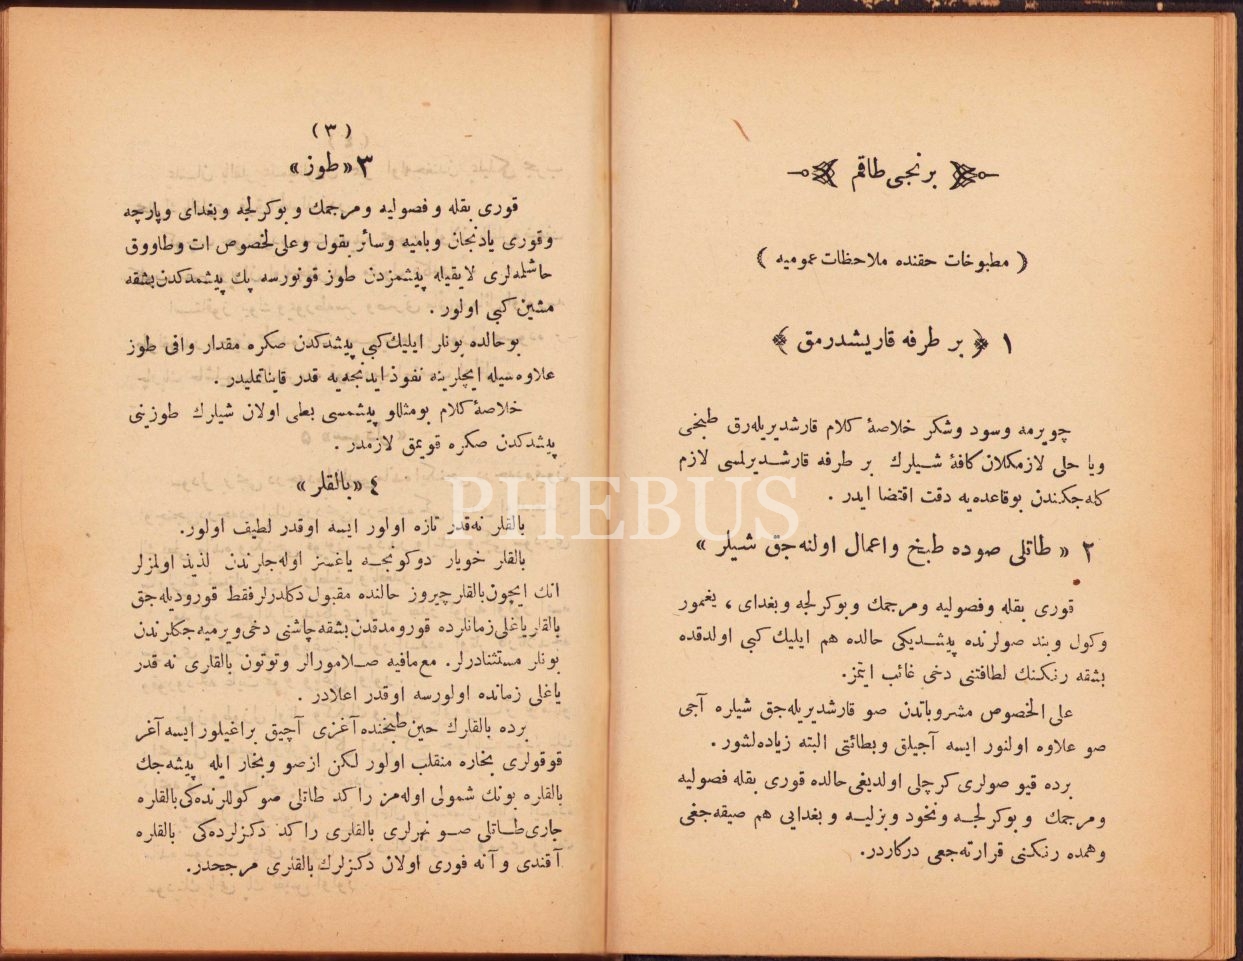 برنجی طاقم
( مطبوخات حقنده ملاحظات عمومیه )
۱ ﴿ بر طرفه قاریشدرمق ﴾
چویرمه وسود وشكر خلاصهٔ كلام قارشدیریله‌رق طبخی
ویا حلی لازمكلان كافهٔ شیلرك بر طرفه قارشدیرلمسی لازم
كله‌جكندن بوقاعده‌یه دقت اقتضا ایدر .
۲ « طاتلی صوده طبخ واعمال اولنه‌جق شیلر »
قوری بقله وفصولیه ومرجمك وبوكرلجه وبغدای ، یغمور
وكول وبند صولرنده پیشدیكی حالده هم ایلیك كبی اولدقده
بشقه رنكنك لطافتنی دخی غائب ایتمز.
علی الخصوص مشروباتدن صو قارشدیریله‌جق شیلره آجی
صو علاوه اولنور ایسه آجیلق وبطائتی البته زیاده‌لشور .
برده قیو صولری كرجلی اولدیغی حالده قوری بقله فصولیه
ومرجمك وبوكرلجه ونخود وبزلیه وبغدایی هم صیقه‌جغی
وهمده رنكنی قرارته‌جغی دركاردر.
( ۳ )
۳ « طوز »
قوری بقله و فصولیه ومرجمك وبوكرلجه وبغدای وپارچه
وقوری یادنجان وبامیه وسائر بقول وعلی الخصوص ات وطاووق
حاشلمه‌لری لایقیله پیشمزدن طوز قونورسه پك پیشمدكدن بشقه
مشین كبی اولور .
بوحالده بونلر ایلیك كبی پیشدكدن صكره مقدار وافی طوز
علاوه‌سیله ایچلرینه نفوذ ایدنجه‌یه قدر قایناتملیدر .
خلاصهٔ كلام بومثللو پیشمسی بطی اولان شیلرك طوزینی
پیشدكدن صكره قویمق لازمدر .
٤ « بالقلر »
بالقلر نه‌قدر تازه اولور ایسه اوقدر لطیف اولور.
بالقلر خویار دوكونجه یاغسز اوله‌جلرندن لذیذ اولمزلر
انك ایچون بالقلر چیروز حالنده مقبول دكلدرلر فقط قورودیله‌جق
بالقلر یاغلی زمانلرده قورومدقدن بشقه چاشنی دخی ویرمیه‌جكلرندن
بونلر مستثنادرلر. مع مافیه صلامورالر وتوتون بالقلری نه قدر
یاغلی زمانده اولورسه اوقدر اعلادر .
برده بالقلرك حین طبخنده آغزی آچیق براغیلور ایسه آغر
قوقولری بخاره منقلب اولور لكن ازصو وبخار ایله پیشه‌جك
بالقلره بونك شمولی اوله‌مز راكد طاتلی صو كوللرنده‌كی بالقلره
جاری طاتلی صو نهرلری بالقلری راكد دكزلرده‌كی بالقلره
آقندی و آنه فوری اولان دكزلرك بالقلری مرجحدر.
PHEBUS